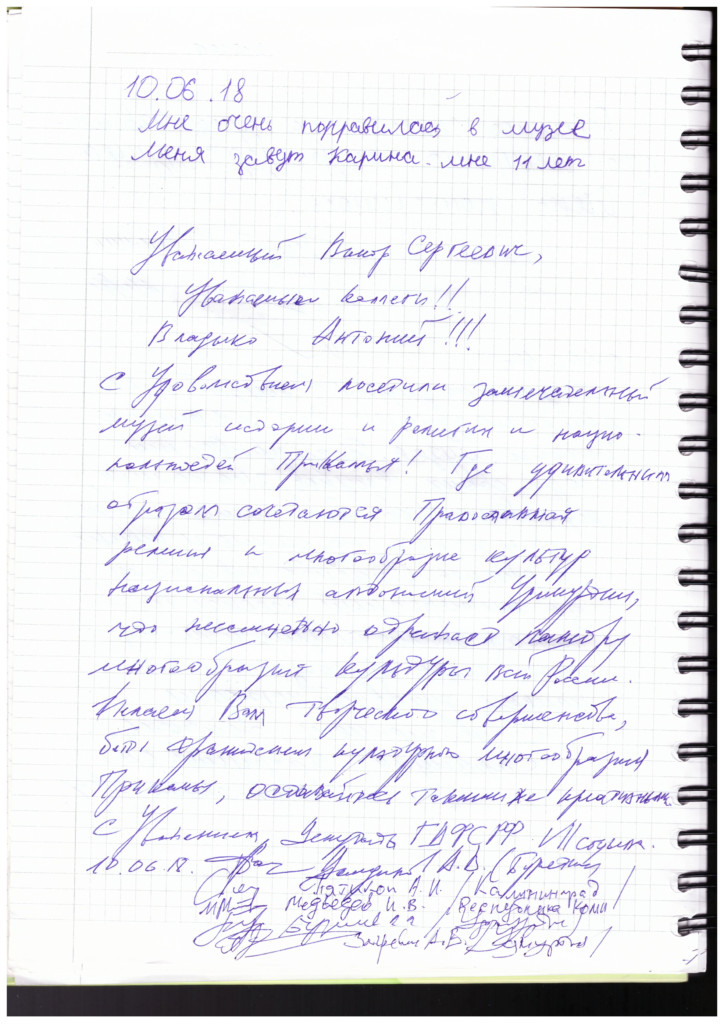 10.06.18
Мне очень понравилась в музее
Меня завут Карина. мне 11 лет
Уважаемый Виктор Сергеевич,
Уважаемые коллеги!!
Владыко Антоний!!!
С Удовольствием посетили замечательный
музей истории и религии и нацио-
нальностей Прикамья! Где удивительным
образом сочетаются Православная
религия и многообразие культур
национальных автономий Удмуртии,
что несомненно отражает
многообразия культуры всей России.
Желаем Вам творческого совершенства,
быть хранителем культурного многообразия
Прикамья, оставайтесь такими же
С Уважением, Депутаты ГДФСРФ VII созыва.
10.06.18. А.В. (Бурятия)
Пятикоп А.И. /Калининград/
Медведев И.В. /Республика Коми/
Загребин А.Е. /Удмуртия/